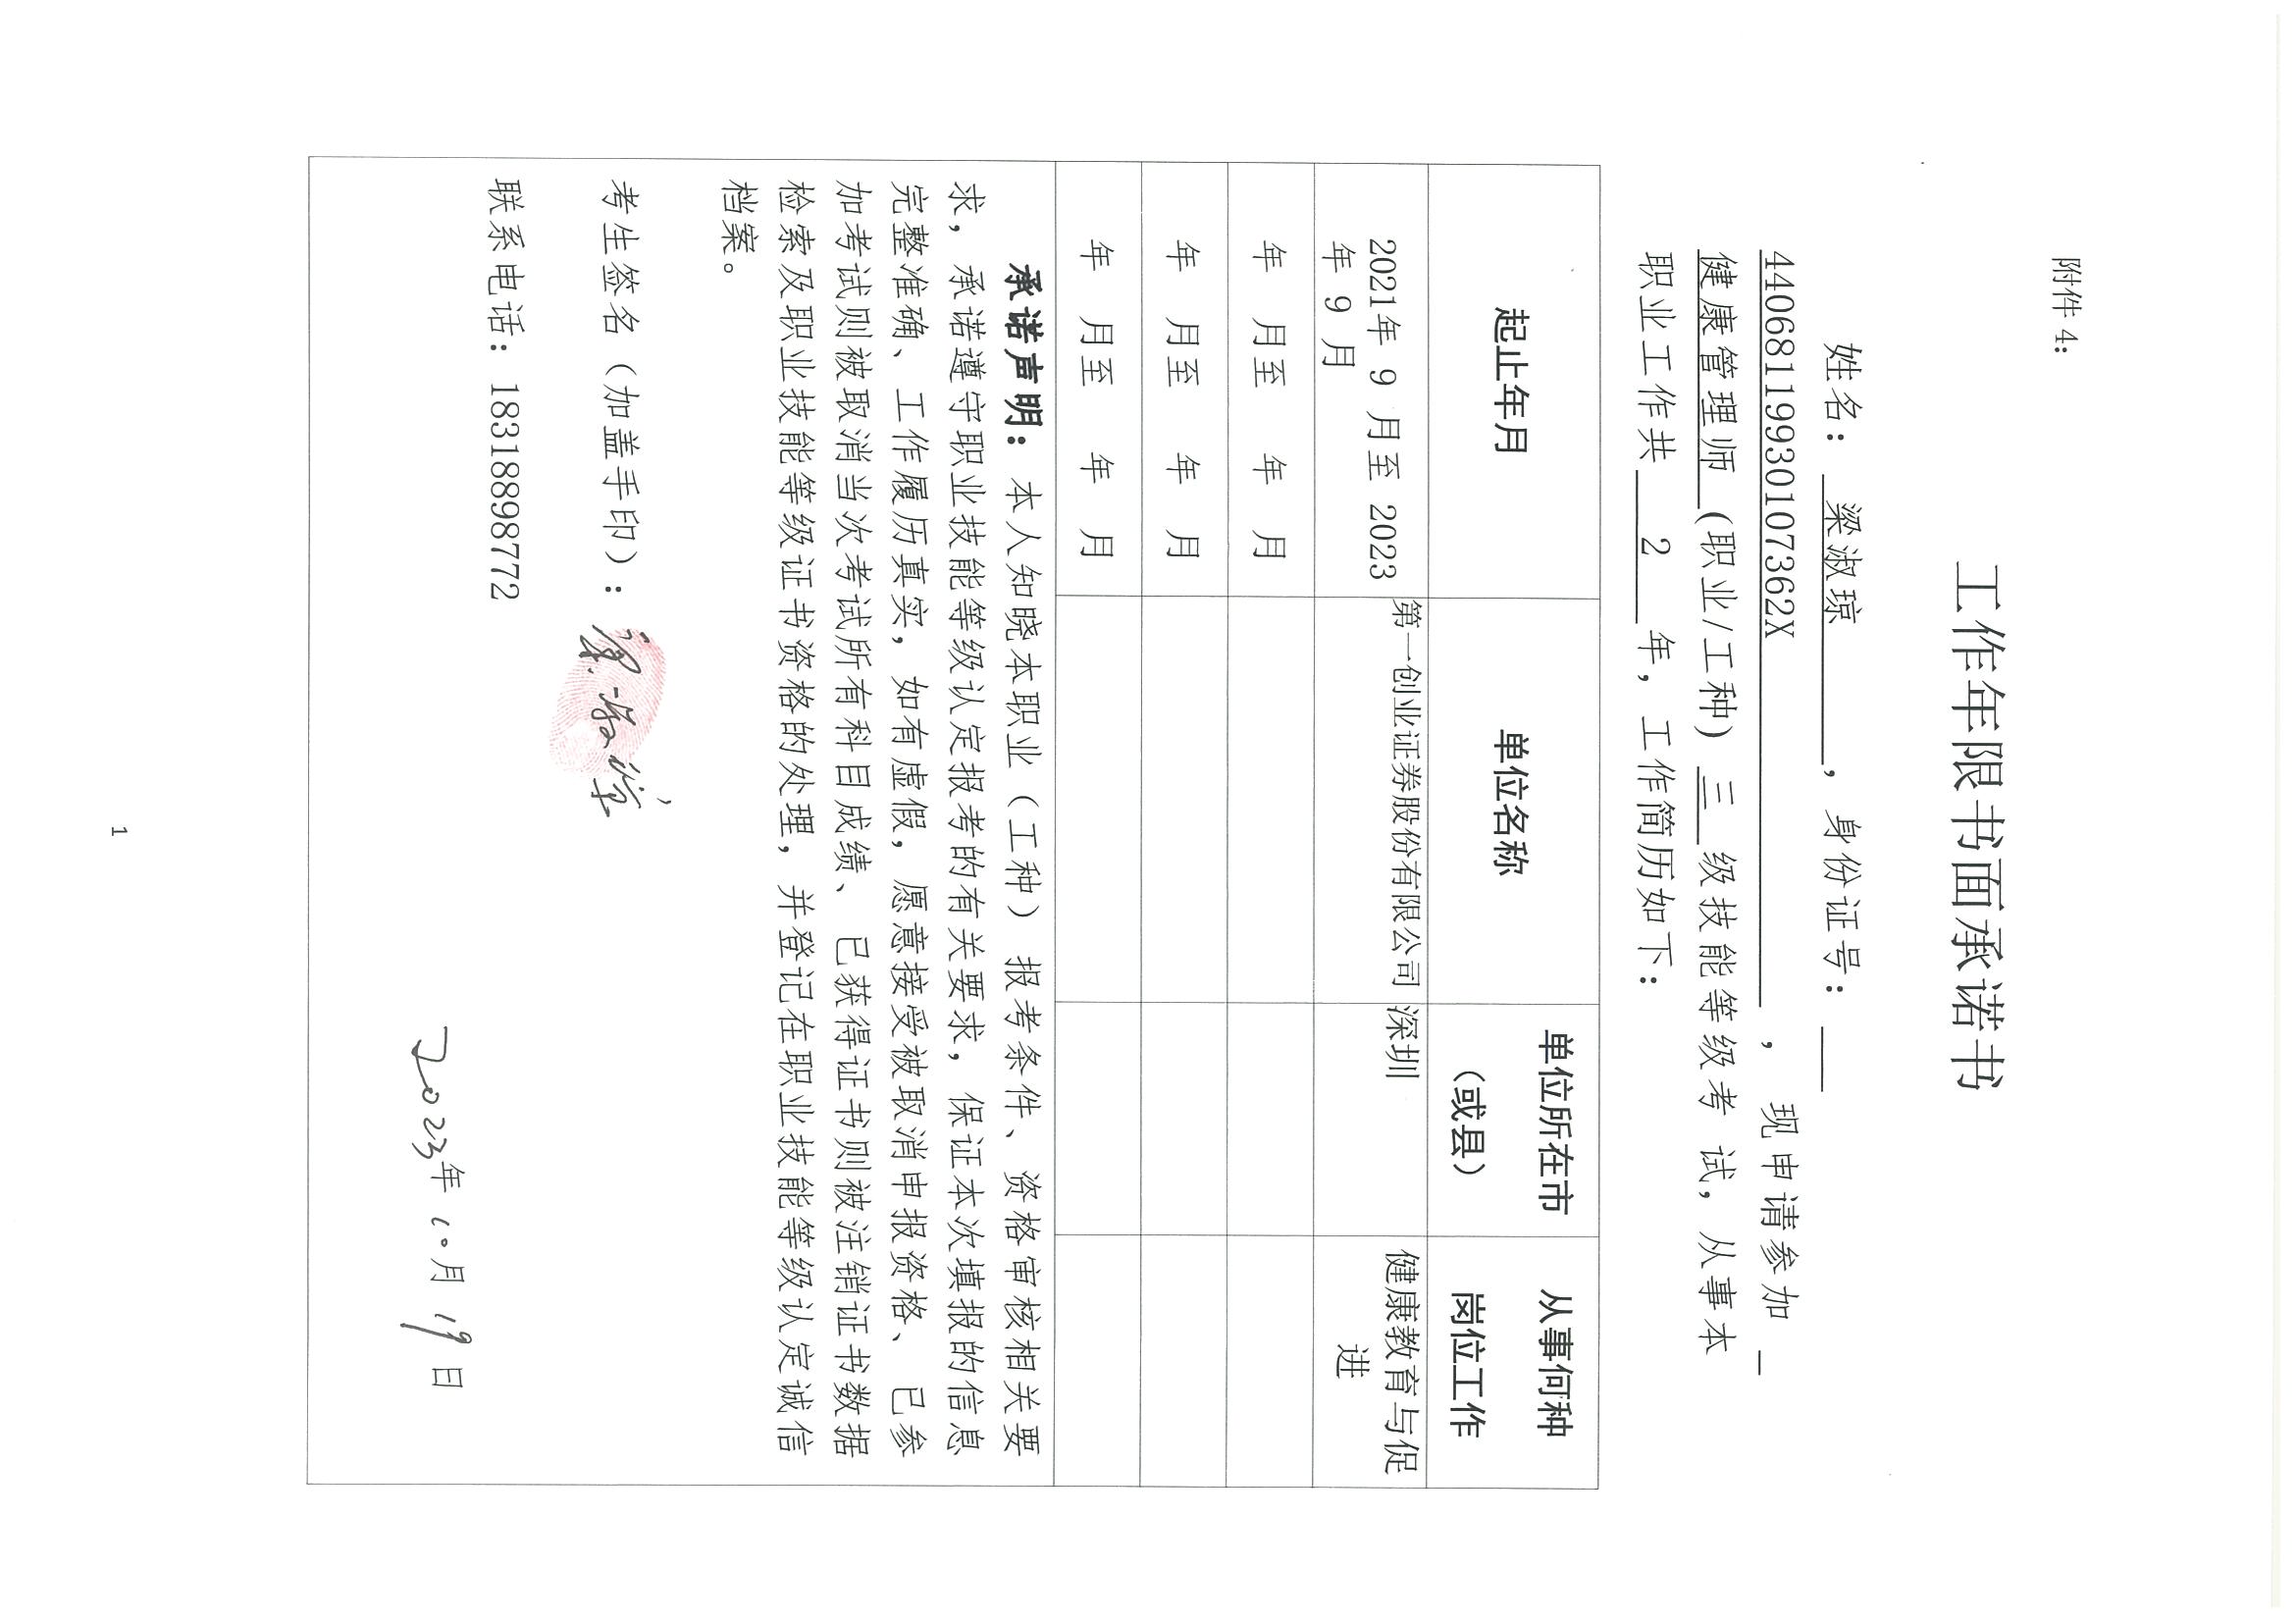 附件 4：
工作年限书面承诺书
姓名： 梁淑琼 ，身份证号：
44068119930107362X ，现申请参加
健康管理师 (职业/工种) 三 级技能等级考 试，从事本
职业工作共 2 年，工作简历如下：
起止年月 单位名称 单位所在市（或县） 从事何种岗位工作
2021年 9 月至 2023年 9 月 第一创业证券股份有限公司 深圳 健康教育与促进
年 月至 年 月
年 月至 年 月
年 月至 年 月
承诺声明：本人知晓本职业（工种）报考条件、资格审核相关要
求，承诺遵守职业技能等级认定报考的有关要求，保证本次填报的信息
完整准确、工作履历真实，如有虚假，愿意接受被取消申报资格、已参
加考试则被取消当次考试所有科目成绩、已获得证书则被注销证书数据
检索及职业技能等级证书资格的处理，并登记在职业技能等级认定诚信
档案。
考生签名（加盖手印）：
联系电话：18318898772
2023年 10月 19日
1